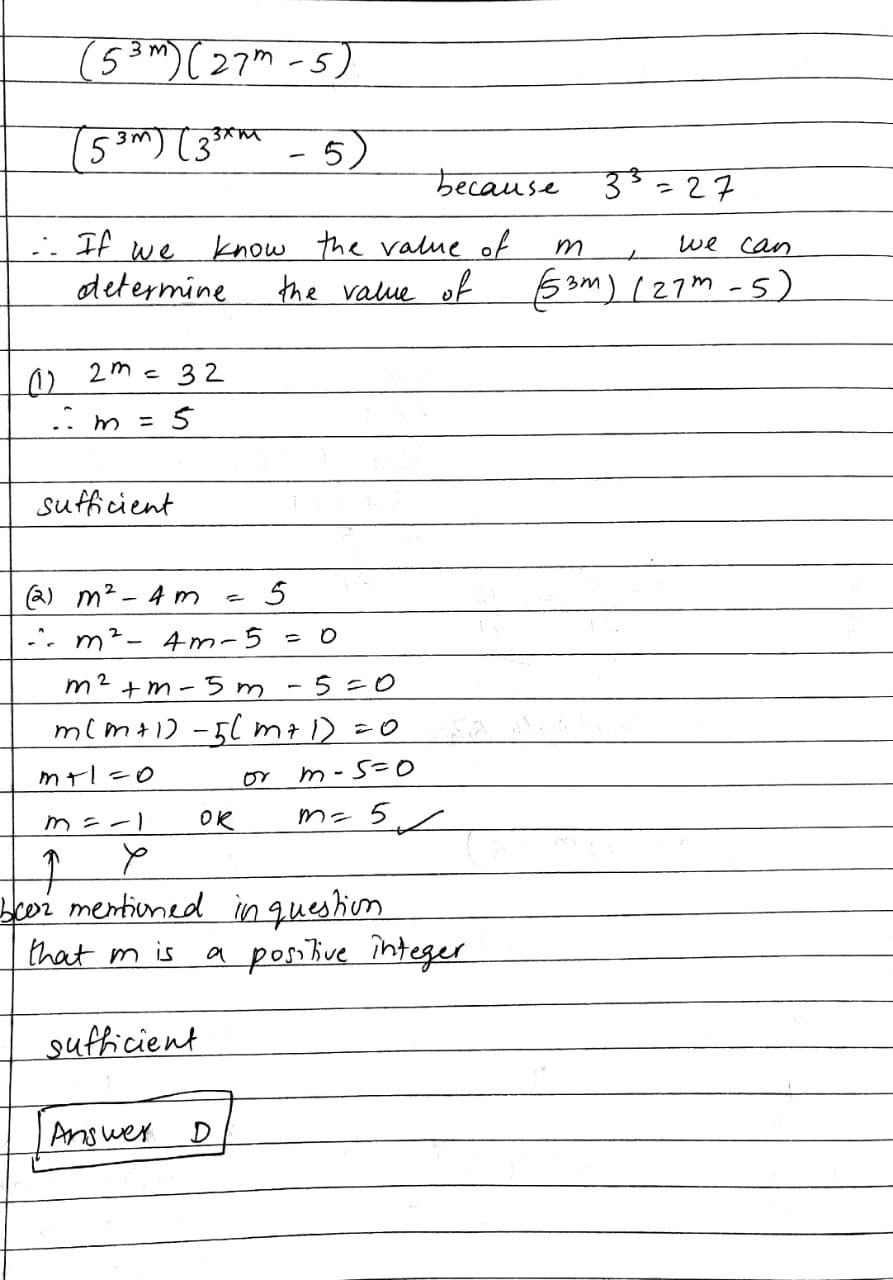 (5³ᵐ)(27ᵐ - 5)
(5³ᵐ)(3³ˣᵐ - 5)
because 3³ = 27
∴ If we know the value of m, we can
determine the value of (5³ᵐ)(27ᵐ - 5)
(1) 2ᵐ = 32
∴ m = 5
sufficient
(2) m² - 4m = 5
∴ m² - 4m - 5 = 0
m² + m - 5m - 5 = 0
m(m+1) - 5(m+1) = 0
m+1 = 0 or m-5=0
m = -1 OR m = 5 ✓
↑ ✗
bcoz mentioned in question
that m is a positive integer
sufficient
Answer D